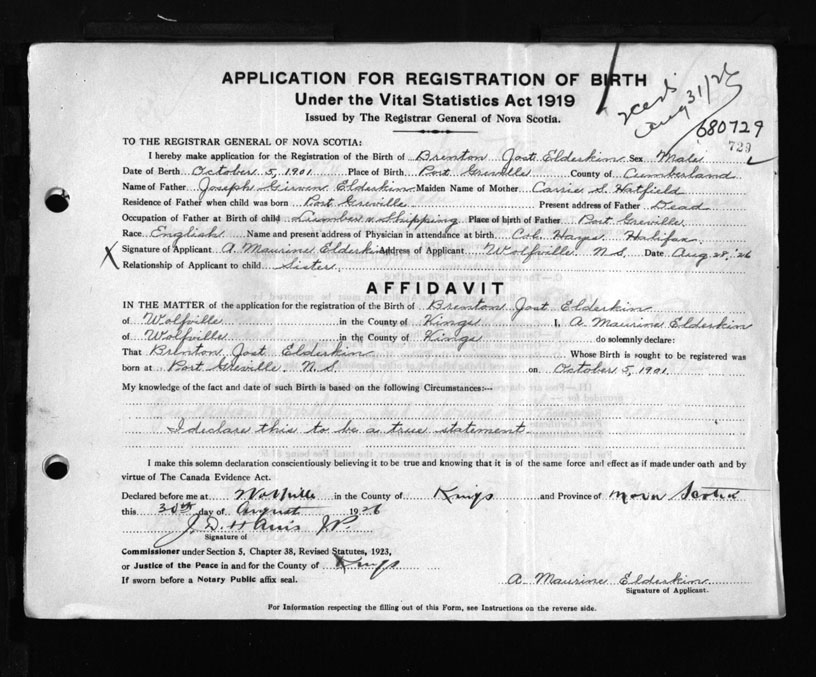 APPLICATION FOR REGISTRATION OF BIRTH
Under the Vital Statistics Act 1919
Issued by The Registrar General of Nova Scotia.
Aug 31/26
680729
729
TO THE REGISTRAR GENERAL OF NOVA SCOTIA:
I hereby make application for the Registration of the Birth of Brenton Jost Elderkin Sex Male
Date of Birth October 5, 1901 Place of Birth Port Greville County of Cumberland
Name of Father Joseph Girvan Elderkin Maiden Name of Mother Carrie S. Hatfield
Residence of Father when child was born Port Greville Present address of Father Dead
Occupation of Father at Birth of child Lumber & Shipping Place of birth of Father Port Greville
Race English Name and present address of Physician in attendance at birth Col. Hayes. Halifax.
X Signature of Applicant A. Maurine Elderkin Address of Applicant Wolfville N.S. Date Aug 28, '26
Relationship of Applicant to child Sister.
AFFIDAVIT
IN THE MATTER of the application for the registration of the Birth of Brenton Jost Elderkin
of Wolfville in the County of Kings I, A. Maurine Elderkin
of Wolfville in the County of Kings do solemnly declare:
That Brenton Jost Elderkin Whose Birth is sought to be registered was
born at Port Greville N.S. on October 5, 1901.
My knowledge of the fact and date of such Birth is based on the following Circumstances:--
I declare this to be a true statement.
I make this solemn declaration conscientiously believing it to be true and knowing that it is of the same force and effect as if made under oath and by
virtue of The Canada Evidence Act.
Declared before me at Wolfville in the County of Kings and Province of Nova Scotia
this 30th day of August 1926
J. D. Harris JP
Signature of
Commissioner under Section 5, Chapter 38, Revised Statutes, 1923,
or Justice of the Peace in and for the County of Kings
If sworn before a Notary Public affix seal.
A. Maurine Elderkin
Signature of Applicant.
For Information respecting the filling out of this Form, see Instructions on the reverse side.